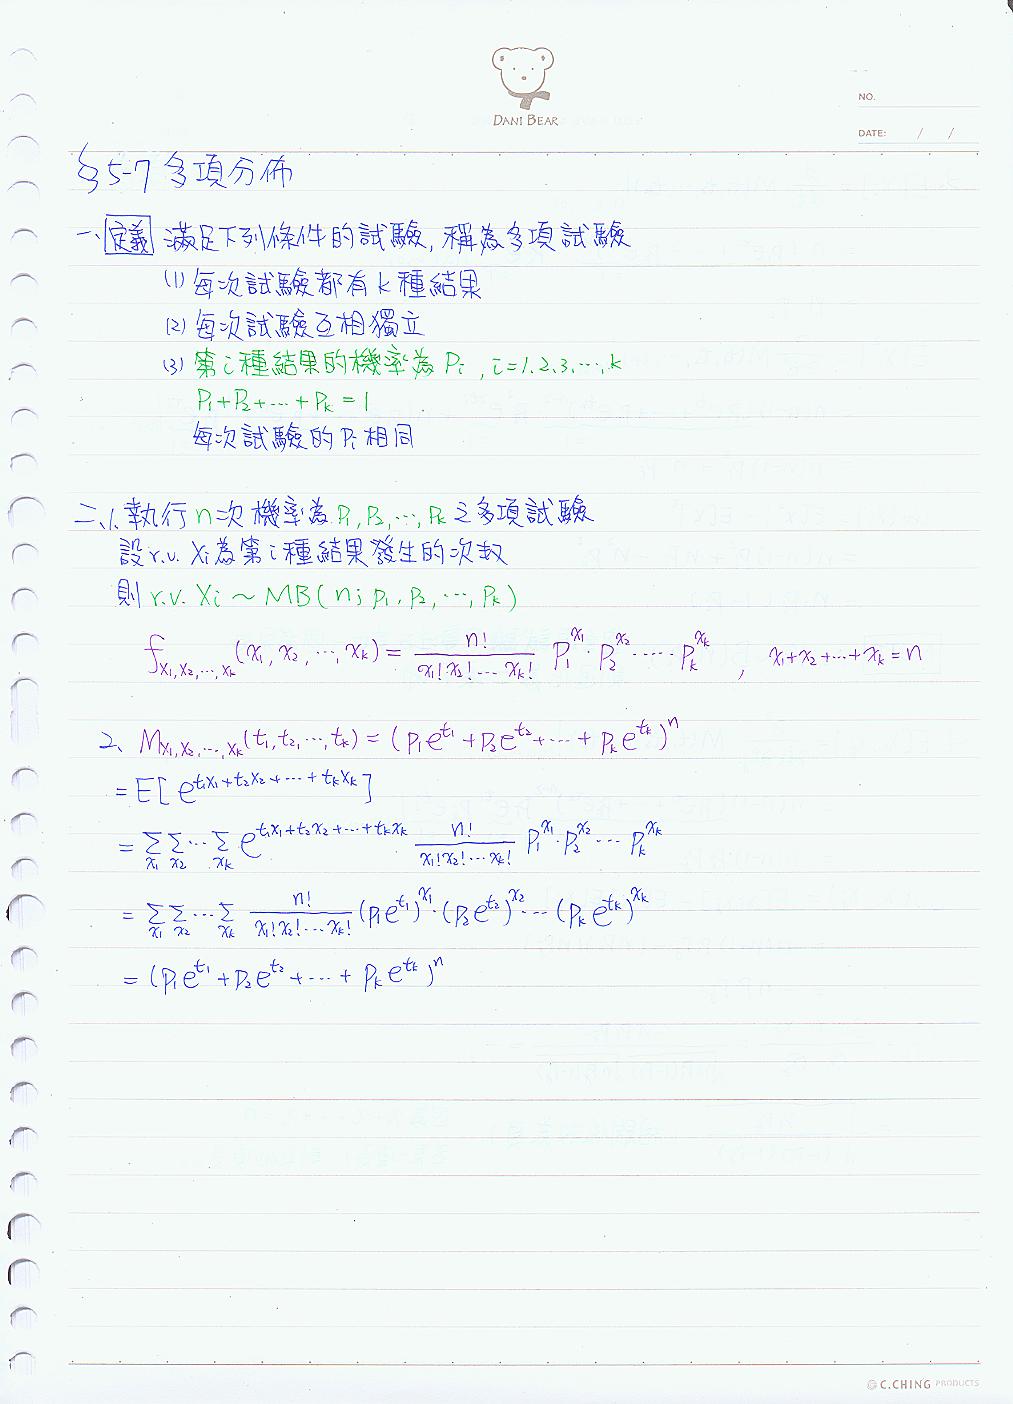 DANI BEAR
NO.
DATE: / /
§5-7 多項分佈
一、定義 滿足下列條件的試驗, 稱為多項試驗
(1) 每次試驗都有 k 種結果
(2) 每次試驗互相獨立
(3) 第 i 種結果的機率為 Pi , i=1.2.3.…,k
P₁+P₂+…+Pₖ=1
每次試驗的 Pi 相同
二、1. 執行 n 次機率為 P₁, P₂, …, Pₖ 之多項試驗
設 r.v. Xi 為第 i 種結果發生的次数
則 r.v. Xi ~ MB(n; P₁, P₂, …, Pₖ)
f_{X₁,X₂,…,Xₖ}(x₁, x₂, …, xₖ) = \frac{n!}{x₁!x₂!…xₖ!} P₁^{x₁}·P₂^{x₂}·…·Pₖ^{xₖ} , x₁+x₂+…+xₖ=n
2、M_{X₁,X₂,…,Xₖ}(t₁,t₂,…,tₖ) = (P₁e^{t₁}+P₂e^{t₂}+…+Pₖe^{tₖ})^n
= E[e^{t₁X₁+t₂X₂+…+tₖXₖ}]
= \sum_{x₁}\sum_{x₂}…\sum_{xₖ} e^{t₁x₁+t₂x₂+…+tₖxₖ} \frac{n!}{x₁!x₂!…xₖ!} P₁^{x₁}·P₂^{x₂}…Pₖ^{xₖ}
= \sum_{x₁}\sum_{x₂}…\sum_{xₖ} \frac{n!}{x₁!x₂!…xₖ!} (P₁e^{t₁})^{x₁}·(P₂e^{t₂})^{x₂}…(Pₖe^{tₖ})^{xₖ}
= (P₁e^{t₁}+P₂e^{t₂}+…+Pₖe^{tₖ})^n
C.CHING PRODUCTS